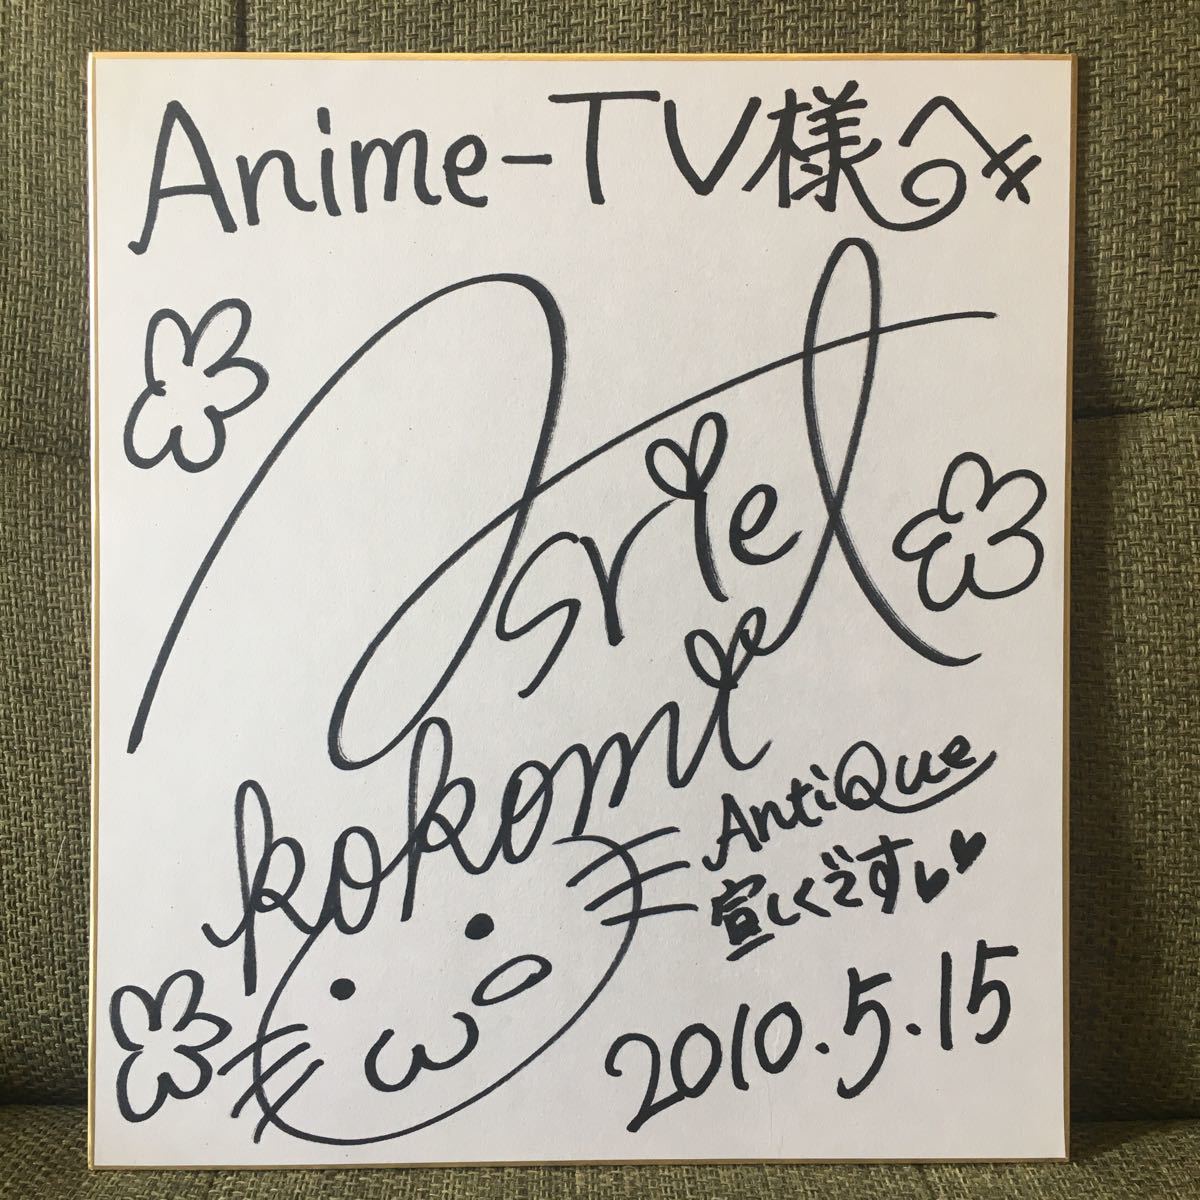 Anime-TV様へ
Asriel
kokomi
AntiQue
宜しくです
2010.5.15